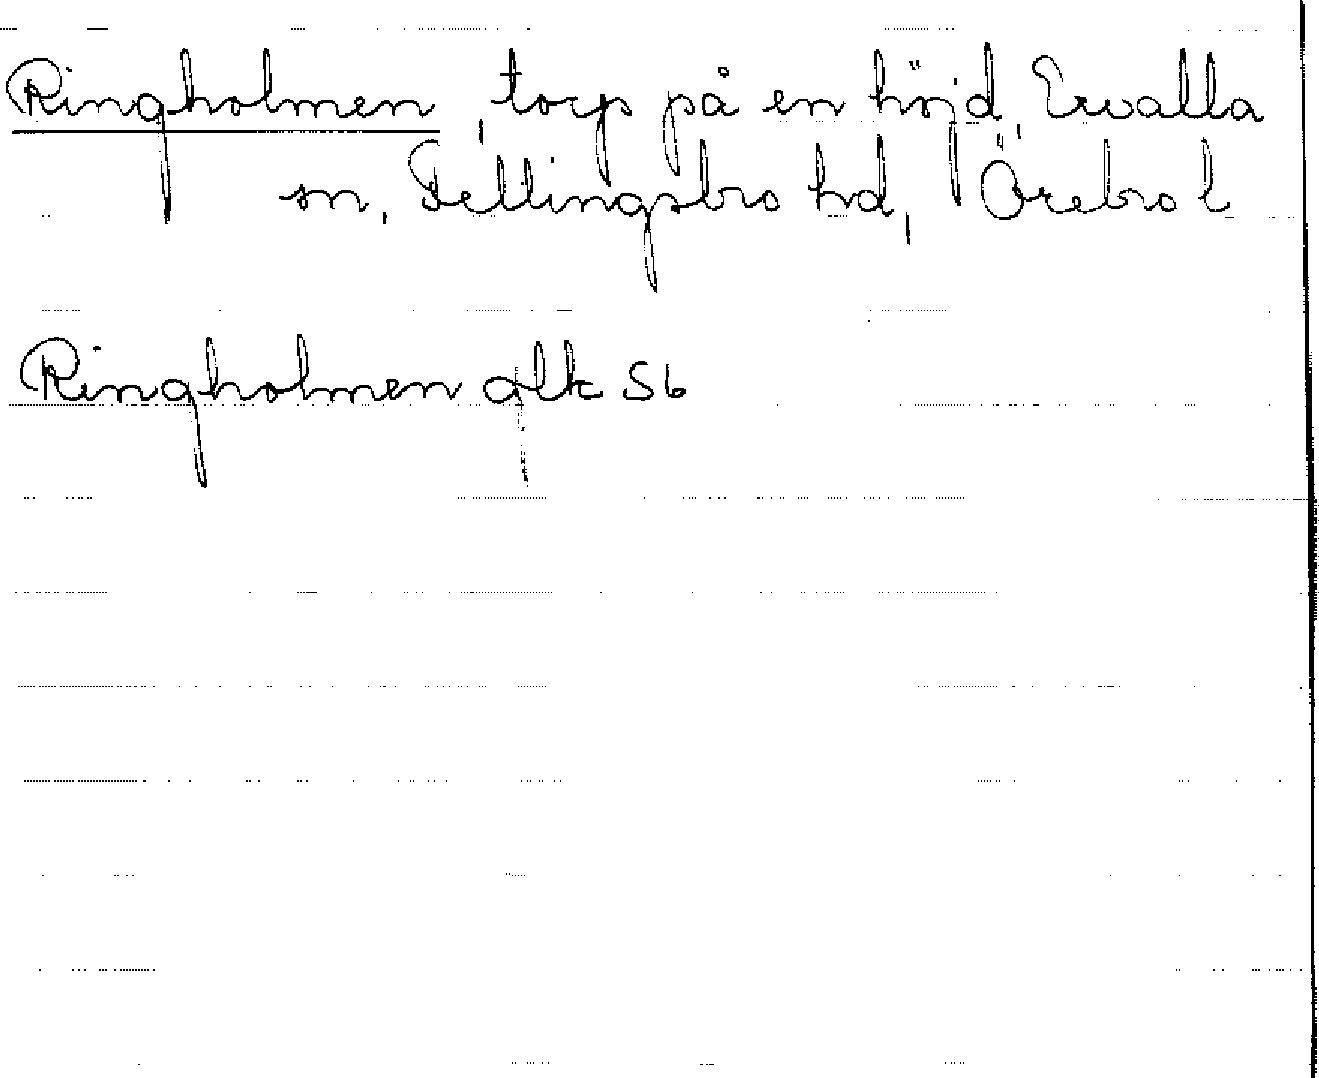 Ringholmen, torp på en höjd, Ervalla
sn, Fellingsbro hd, Örebro l
Ringholmen glk 56